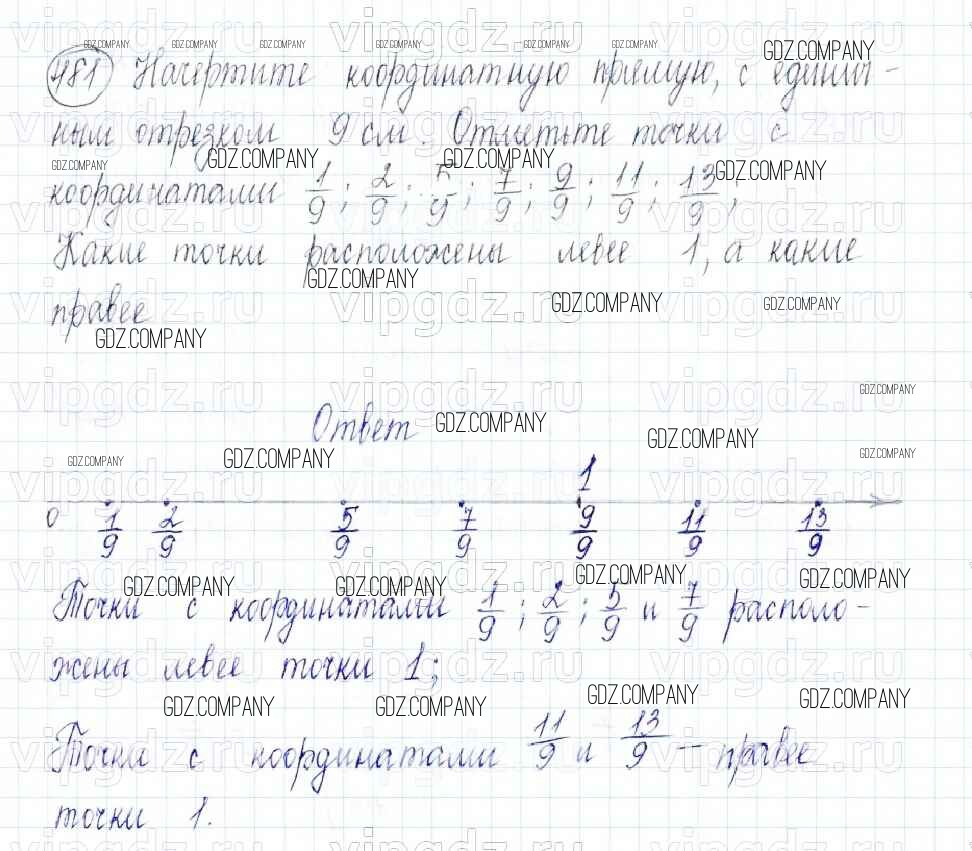 481 Начертите координатную прямую, с единич-
ным отрезком 9 см. Отметьте точки с
координатами 1/9; 2/9; 5/9; 7/9; 9/9; 11/9; 13/9;
Какие точки расположены левее 1, а какие
правее
Ответ
1
0 1/9 2/9 5/9 7/9 9/9 11/9 13/9
Точки с координатами 1/9; 2/9; 5/9 и 7/9 располо-
жены левее точки 1;
Точки с координатами 11/9 и 13/9 – правее
точки 1.
GDZ.COMPANY
vipgdz.ru